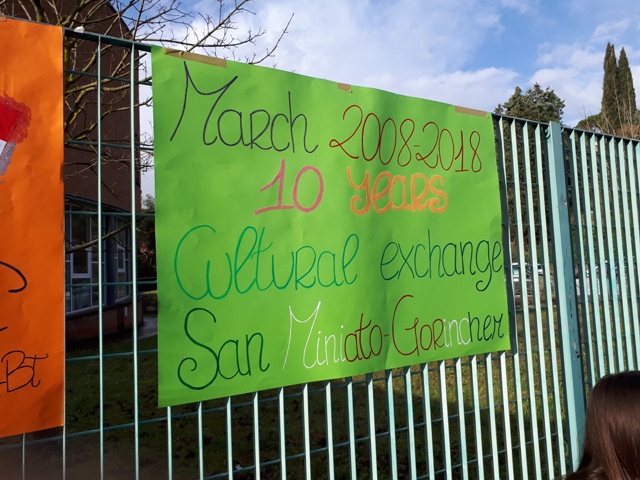 March 2008-2018
10 Years
Cultural exchange
San Miniato-Gorinchem